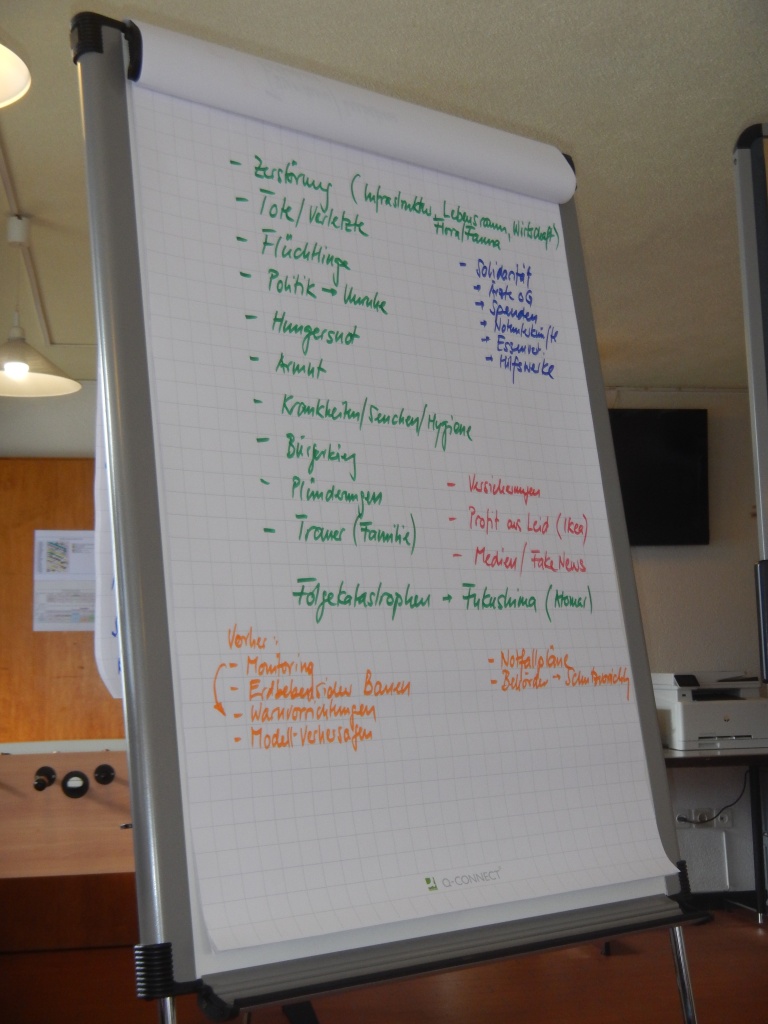 - Zerstörung (Infrastruktur, Lebensraum, Wirtschaft)
Flora/Fauna
- Tote/Verletzte
- Flüchtlinge
- Politik → Unruhe
- Hungersnot
- Armut
- Krankheiten/Seuchen/Hygiene
- Bürgerkrieg
- Plünderungen
- Trauer (Familie)
- Solidarität
→ Ärzte oG
→ Spenden
→ Notunterkünfte
→ Essen
→ Hilfswerke
- Versicherungen
- Profit aus Leid (Ikea)
- Medien/Fake News
Folgekatastrophen → Fukushima (Atomar)
Vorher:
- Monitoring
- Erdbebensicher Bauen
- Warnvorrichtungen
- Modell-Vorhersagen
- Notfallpläne
- Behörden →
Q-CONNECT